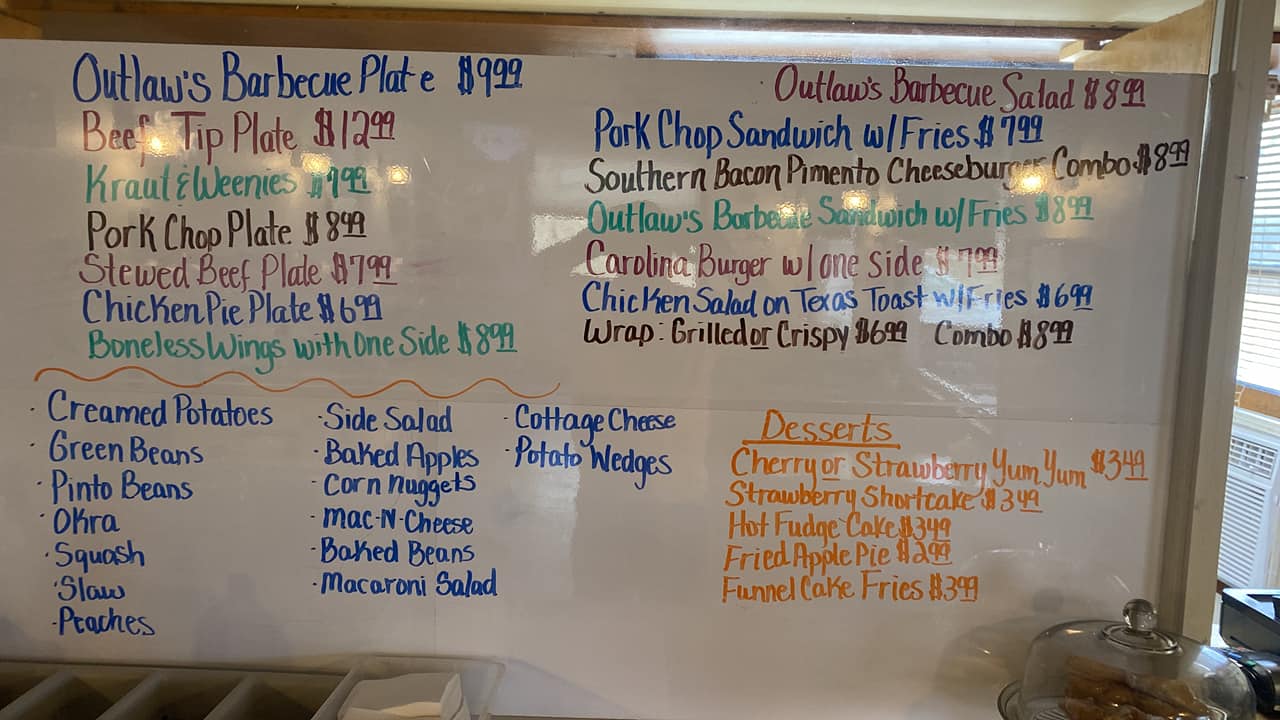 Outlaw's Barbecue Plate $9.99
Beef Tip Plate $12.99
Kraut & Weenies $7.99
Pork Chop Plate $8.99
Stewed Beef Plate $7.99
Chicken Pie Plate $6.99
Boneless Wings with One Side $8.99
Outlaw's Barbecue Salad $8.99
Pork Chop Sandwich w/Fries $7.99
Southern Bacon Pimento Cheeseburger Combo $8.99
Outlaw's Barbecue Sandwich w/Fries $8.99
Carolina Burger w/one side $7.99
Chicken Salad on Texas Toast w/Fries $6.99
Wrap: Grilled or Crispy $6.99 Combo $8.99
· Creamed Potatoes
· Green Beans
· Pinto Beans
· Okra
· Squash
· Slaw
· Peaches
· Side Salad
· Baked Apples
· Corn Nuggets
· Mac-N-Cheese
· Baked Beans
· Macaroni Salad
· Cottage Cheese
· Potato Wedges
Desserts
Cherry or Strawberry Yum Yum $3.49
Strawberry Shortcake $3.49
Hot Fudge Cake $3.49
Fried Apple Pie $2.99
Funnel Cake Fries $3.99